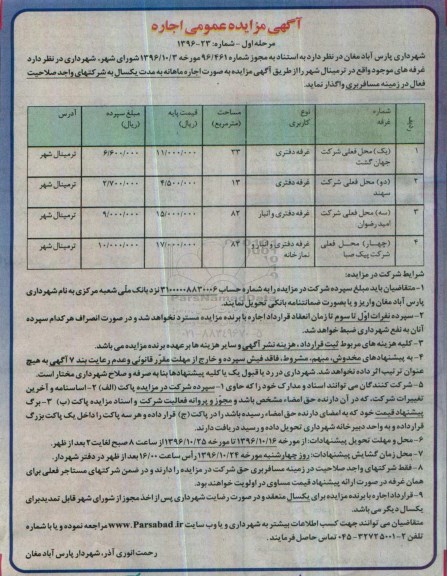 آگهی مزایده عمومی اجاره
مرحله اول - شماره: ۲۳-۱۳۹۶
شهرداری پارس آباد مغان در نظر دارد به استناد به مجوز شماره ۹۶/۴۶۱ مورخه ۱۳۹۶/۱۰/۳ شورای شهر، شهرداری در نظر دارد
غرفه های موجود واقع در ترمینال شهر را از طریق آگهی مزایده به صورت اجاره ماهانه به مدت یکسال به شرکتهای واجد صلاحیت
فعال در زمینه مسافربری واگذار نماید.
شماره غرفه نوع کاربری مساحت (مترمربع) قیمت پایه (ریال) مبلغ سپرده (ریال) آدرس
۱ (یک) محل فعلی شرکت جهان گشت غرفه دفتری ۳۳ ۱۱/۰۰۰/۰۰۰ ۶/۶۰۰/۰۰۰ ترمینال شهر
۲ (دو) محل فعلی شرکت سهند غرفه دفتری ۱۳ ۴/۵۰۰/۰۰۰ ۲/۷۰۰/۰۰۰ ترمینال شهر
۳ (سه) محل فعلی شرکت امید رضوان غرفه دفتری و انبار ۸۲ ۱۵/۰۰۰/۰۰۰ ۹/۰۰۰/۰۰۰ ترمینال شهر
۴ (چهار) محل فعلی شرکت پیک صبا غرفه دفتری و انبار و نمازخانه ۸۴ ۱۷/۰۰۰/۰۰۰ ۱۰/۰۰۰/۰۰۰ ترمینال شهر
شرایط شرکت در مزایده:
۱- متقاضیان باید مبلغ سپرده شرکت در مزایده را به شماره حساب ۳۱۰۰۰۰۰۸۸۳۰۰۶ نزد بانک ملی شعبه مرکزی به نام شهرداری
پارس آباد مغان واریز و یا بصورت ضمانتنامه بانکی تحویل نمایند.
۲- سپرده نفرات اول تا سوم تا زمان انعقاد قرارداد اجاره با برنده مزایده مسترد نخواهد شد و در صورت انصراف هر کدام سپرده
آنان به نفع شهرداری ضبط خواهد شد.
۳- کلیه هزینه های مربوط ثبت قرارداد، هزینه نشر آگهی و سایر هزینه ها بر عهده برنده مزایده می باشد.
۴- به پیشنهادهای مخدوش، مبهم، مشروط، فاقد فیش سپرده و خارج از مهلت مقرر قانونی و عدم رعایت بند ۷ آگهی به هیچ
عنوان ترتیب اثر داده نخواهد شد. شهرداری در رد یا قبول یک یا کلیه پیشنهادها بنا به صرفه و صلاح شهرداری مختار است.
۵- شرکت کنندگان می توانند اسناد و مدارک خود را که حاوی ۱- سپرده شرکت در مزایده پاکت (الف) ۲- اساسنامه و آخرین
تغییرات شرکت، که در آن دارنده حق امضاء مشخص باشد و مجوز و پروانه فعالیت شرکت و اسناد مزایده پاکت (ب) ۳- برگ
پیشنهاد قیمت خود که به امضای دارنده حق امضاء رسیده باشد را در پاکت (ج) قرار داده و هر سه پاکت را داخل یک پاکت بزرگ
قرار داده و به واحد دبیرخانه شهرداری تحویل داده و رسید دریافت دارند.
۶- محل و مهلت تحویل پیشنهادات: از مورخه ۱۳۹۶/۱۰/۱۶ تا مورخه ۱۳۹۶/۱۰/۲۵ از ساعت ۸ صبح لغایت ۲ بعد از ظهر.
۷- محل زمان گشایش پیشنهادات: روز چهارشنبه مورخه ۱۳۹۶/۱۰/۲۴ رأس ساعت ۱۶/۰۰ بعد از ظهر در دفتر شهردار.
۸- فقط شرکتهای واجد صلاحیت در زمینه مسافربری حق شرکت در مزایده را دارند و در ضمن شرکتهای مستاجر فعلی برای
همان غرفه در صورت ارائه پیشنهاد قیمت مساوی در اولویت خواهند بود.
۹- قرارداد اجاره با برنده مزایده برای یکسال منعقد و در صورت رضایت شهرداری پس از اخذ مجوز از شورای شهر قابل تمدید برای
یکسال دیگر می باشد.
متقاضیان می توانند جهت کسب اطلاعات بیشتر به شهرداری و یا وب سایت www.Parsabad.ir مراجعه نموده و یا با شماره
تلفن ۲-۳۲۷۲۵۰۰۱-۰۴۵ تماس حاصل فرمایند.
رحمت انوری آذر، شهردار پارس آباد مغان